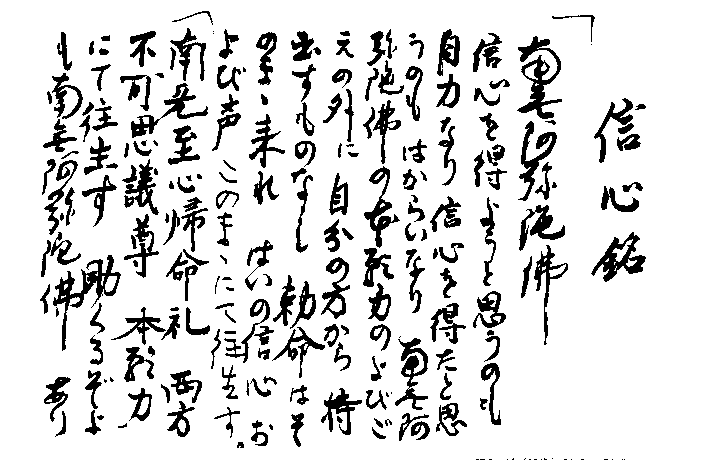 信心銘
南無阿弥陀佛
信心を得ようと思うのも
自力なり 信心を得たと思
うのも はからいなり 南無阿
弥陀佛の本願力のよびご
えの外に 自分の方から 持
出すものなし 勅命はそ
のまゝ来れ はいの信心 お
よび声 このまゝにて往生す。
「南無至心帰命礼 西方
不可思議尊 本願力
にて往生す 助くるぞよ
も南無阿弥陀佛 あり